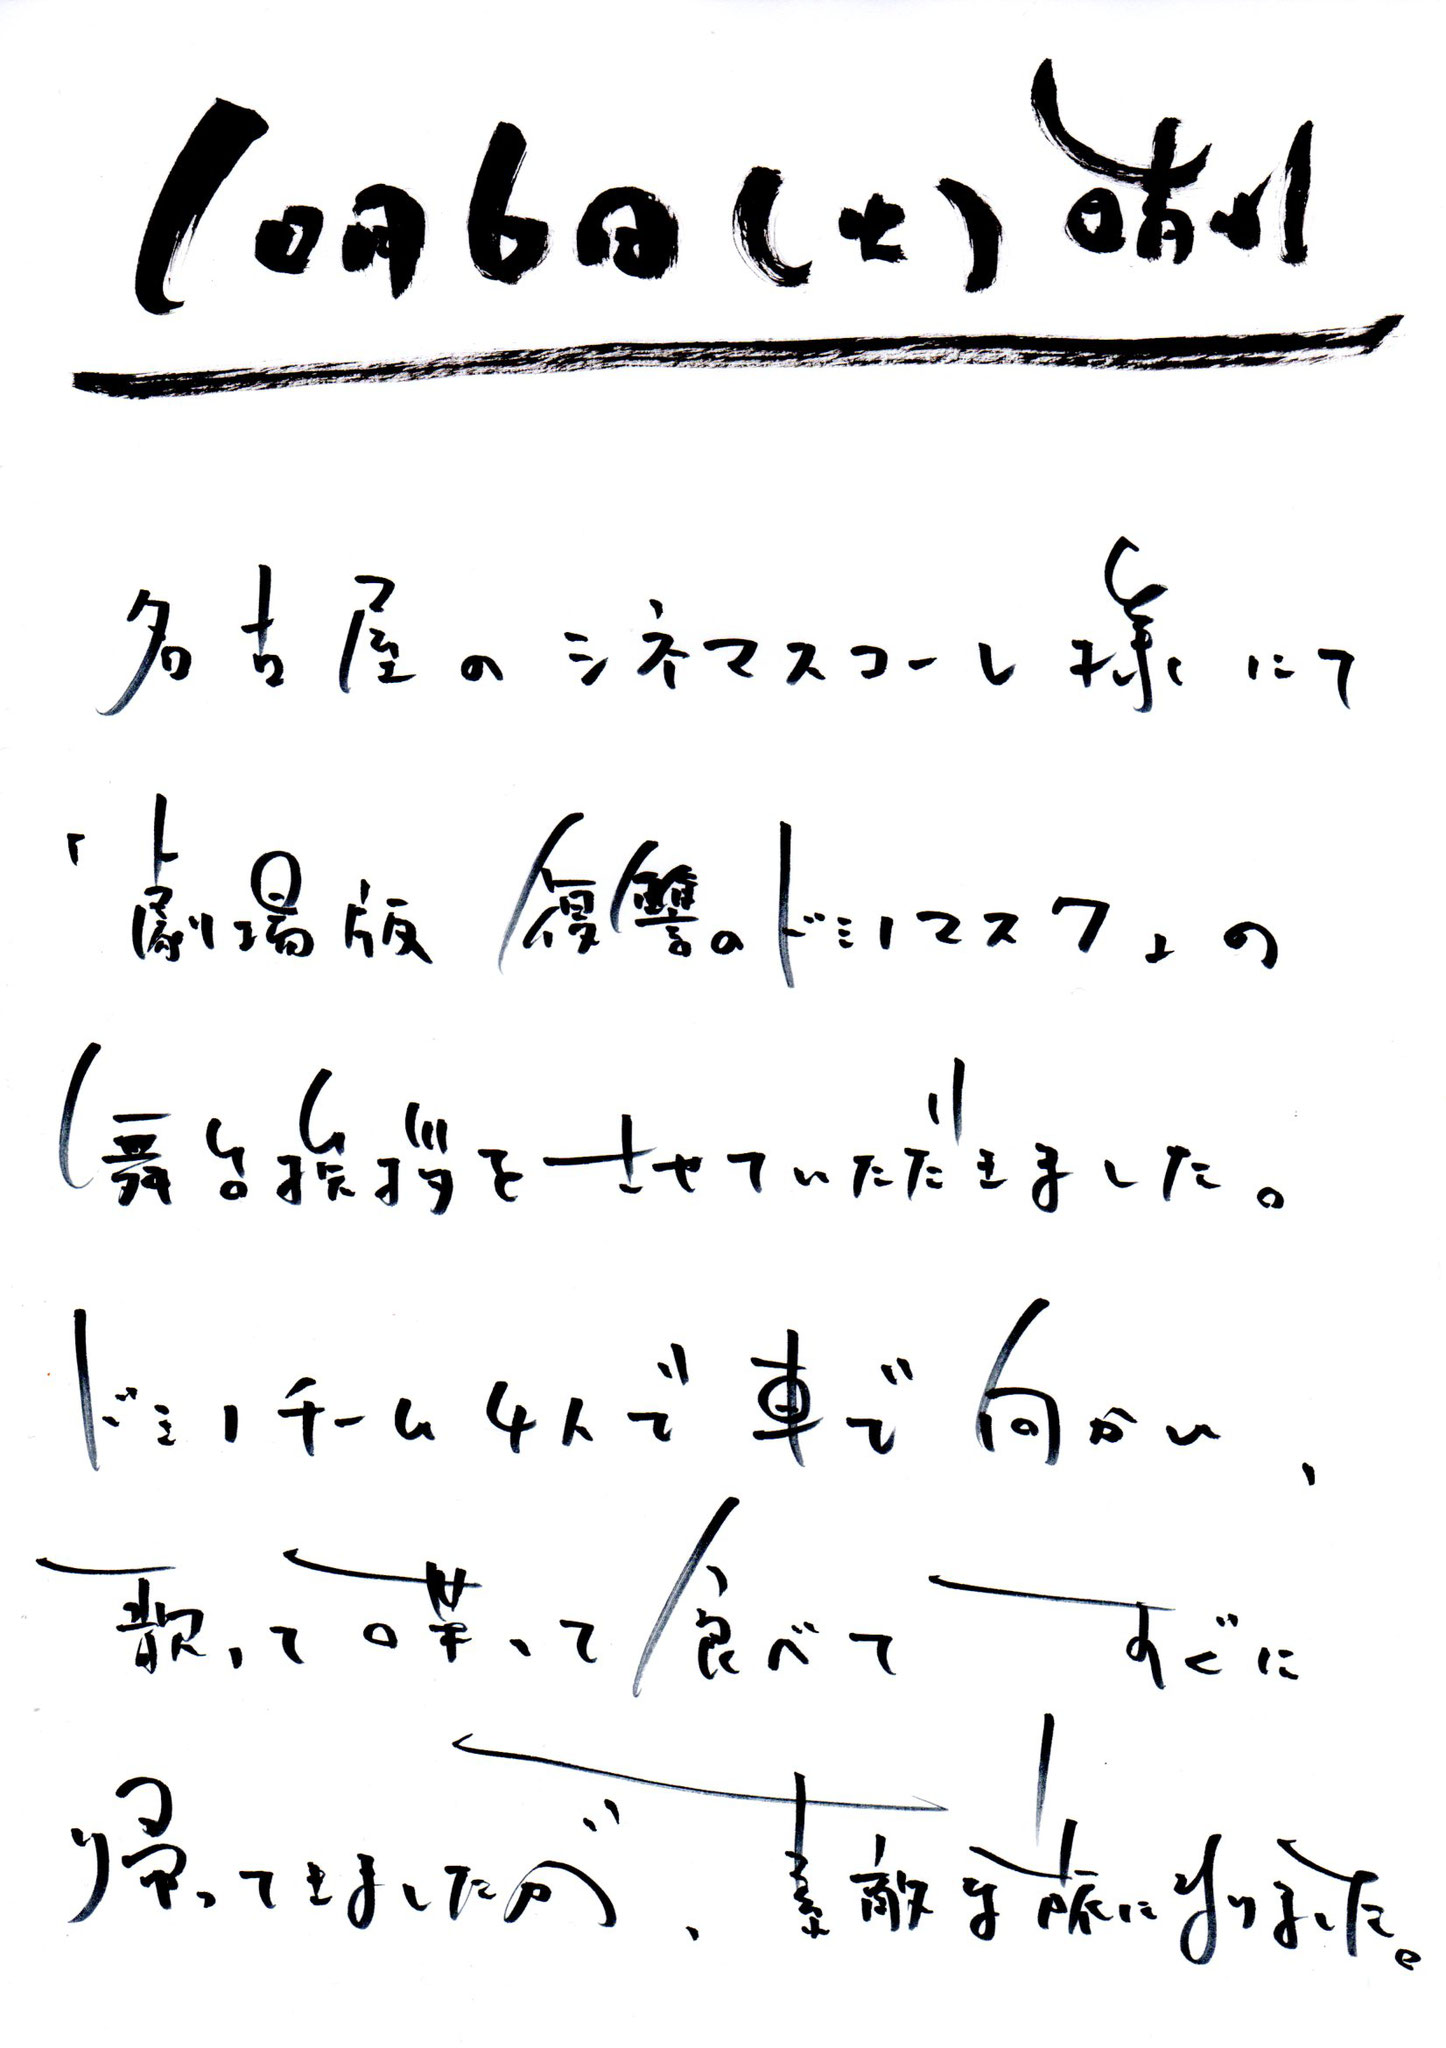 10月6日(火)晴れ
名古屋のシネマスコーレ様にて
「劇場版 復讐のドミノマスク」の
舞台挨拶をさせていただきました。
ドミノチーム4人で車で向かい、
歌って喋って食べてすぐに
帰ってきましたが、素敵な旅になりました。